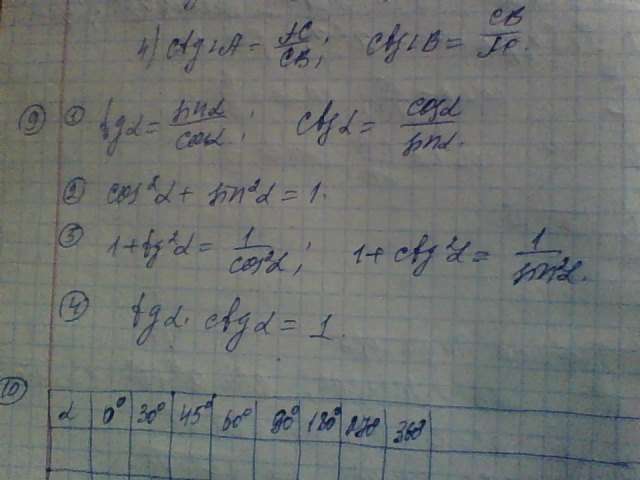 4) ctg∠A = AC/CB; ctg∠B = CB/AC.
⑨ ① tgα = sinα/cosα; ctgα = cosα/sinα.
② cos²α + sin²α = 1.
③ 1 + tg²α = 1/cos²α; 1 + ctg²α = 1/sin²α.
④ tgα · ctgα = 1.
⑩
α 0° 30° 45° 60° 90° 180° 270° 360°